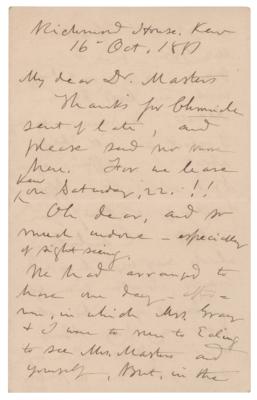 Richmond House, Kew
16 Oct, 1887
My dear Dr. Masters
Thanks for Chronicle
sent of late, and
please send no more
here. For we leave
Kew on Saturday, 22 - !!
Oh dear, and so
much undone - especially
of sight seeing.
We had arranged to
have one day -
in which Mrs. Gray
& I were to run to Ealing
to see Mrs. Masters and
yourself, But, in the